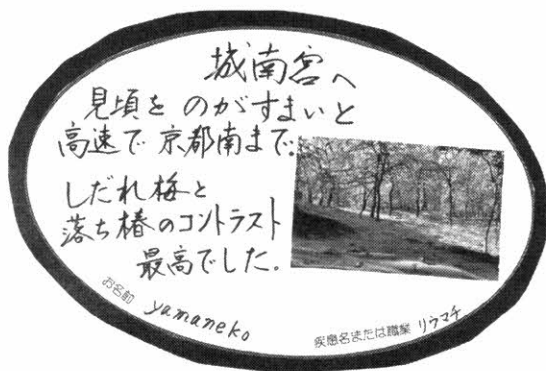 城南宮へ
見頃を のがすまいと
高速で 京都南まで.
しだれ梅と
落ち椿のコントラスト
最高でした.
お名前 yamaneko
疾患名または職業 リウマチ